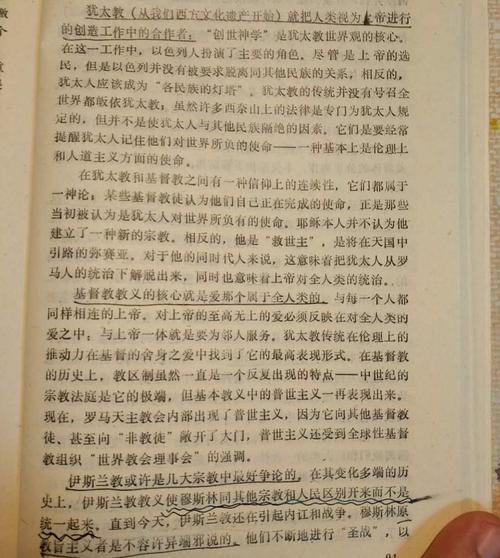 犹太教（从我们西方文化遗产开始）就把人类视为上帝进行
的创造工作中的合作者；“创世神学”是犹太教世界观的核心。
在这一工作中，以色列人扮演了主要的角色。尽管是上帝的选
民，但是以色列并没有被要求脱离同其他民族的关系，相反的，
犹太人应该成为“各民族的灯塔”。犹太教的传统并没有号召全
世界都皈依犹太教；虽然许多西奈山上的法律是专门为犹太人规
定的，但并不是使犹太人与其他民族隔绝的因素，它们是要经常
提醒犹太人记住他们对世界所负的使命——一种基本上是伦理上
和人道主义方面的使命。
在犹太教和基督教之间有一种信仰上的连续性，它们都属于
一神论；某些基督教徒认为他们自己正在完成的使命，正是那些
当初被认为是犹太人对世界所负有的使命。耶稣本人并不认为他
建立了一种新的宗教。相反的，他是“救世主”，是将在天国中
引路的弥赛亚。对于他的同时代人来说，这意味着把犹太人从罗
马人的统治下解脱出来，同时也意味着上帝对全人类的统治。
基督教教义的核心就是爱那个属于全人类的、与每一个人都
同样相连的上帝。对上帝的至高无上的爱必须反映在对全人类的
爱之中；与上帝一体就是要为邻人服务。犹太教传统在伦理上的
推动力在基督的舍身之爱中找到了它的最高表现形式。在基督教
的历史上，教区制虽然一直是一个反复出现的特点——中世纪的
宗教法庭是它的极端，但基本教义中的普世主义一再表现出来。
现在，罗马天主教会内部出现了普世主义，因为它向其他基督教
徒、甚至向“非教徒”敞开了大门，普世主义还受到全球性基督
教组织“世界教会理事会”的强调。
伊斯兰教或许是几大宗教中最好争论的。在其变化多端的历
史上，伊斯兰教教义使穆斯林同其他宗教和人民区别开来而不是
统一起来。直到今天，伊斯兰教还在引起内讧和战争。穆斯林原
教旨主义者是不容许异端邪说的。他们不断地进行“圣战”，以